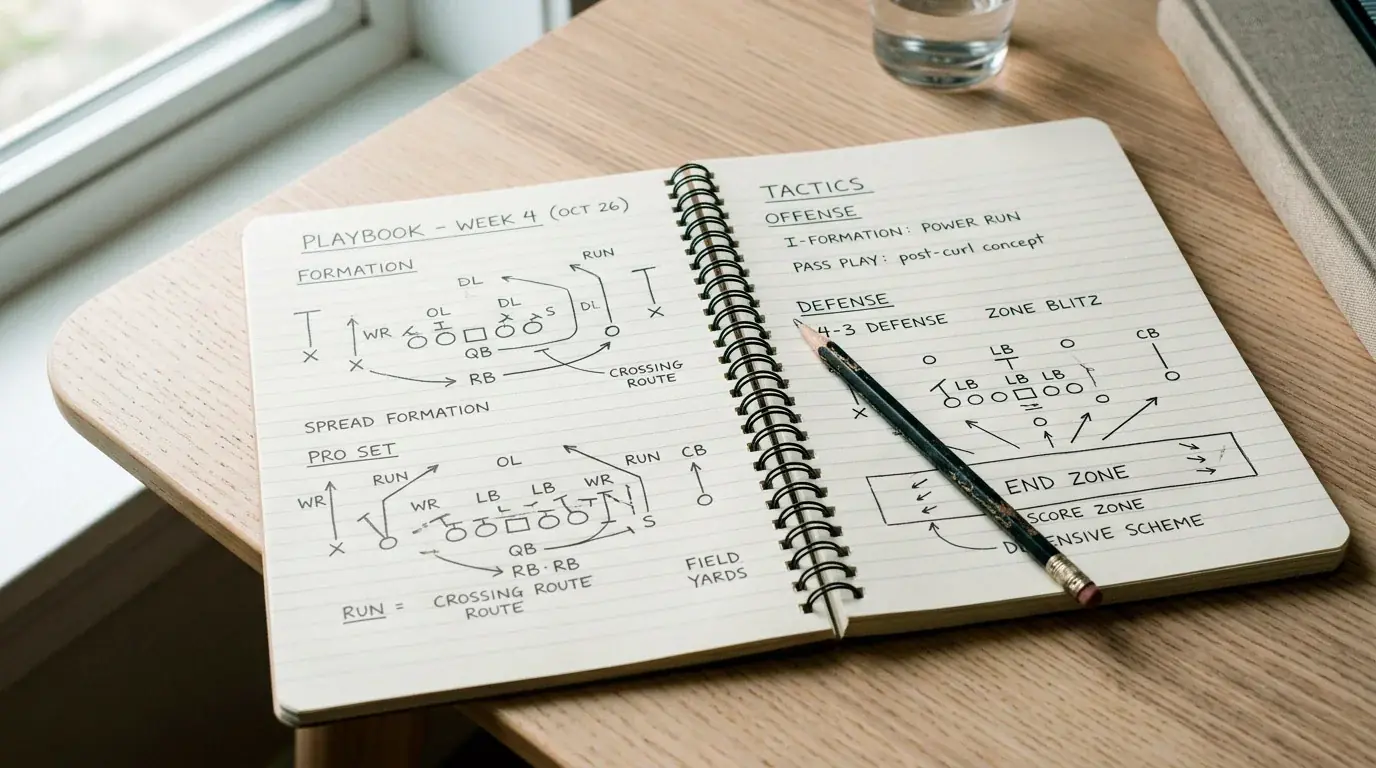 PLAYBOOK – WEEK 4 (OCT 26)
FORMATION
RUN
DL
OL DL S DL
WR
QB
RB
CROSSING
ROUTE
SPREAD FORMATION
PRO SET
RUN OL RUN CB
WR WR LB LB WR
L
QB S
RB · RB
CROSSING ROUTE
ROUTE
RUN =
FIELD
YARDS
TACTICS
OFFENSE
I-FORMATION: POWER RUN
PASS PLAY: post-curl concept
DEFENSE
4-3 DEFENSE ZONE BLITZ
LB CB
LB LB LB
END ZONE
SCORE ZONE
SCHEME